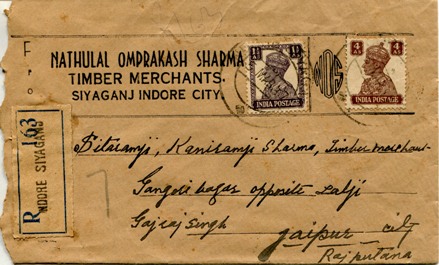 From
NATHULAL OMPRAKASH SHARMA
TIMBER MERCHANTS.
SIYAGANJ INDORE CITY.
NOS
INDIA POSTAGE
4 AS 4 AS
INDIA POSTAGE
R
163
INDORE SIYAGANJ
7
Sharma, Timber merchant
Gangori bazar opposite Lalji
Gajraj Singh
Jaipur city
Rajputana